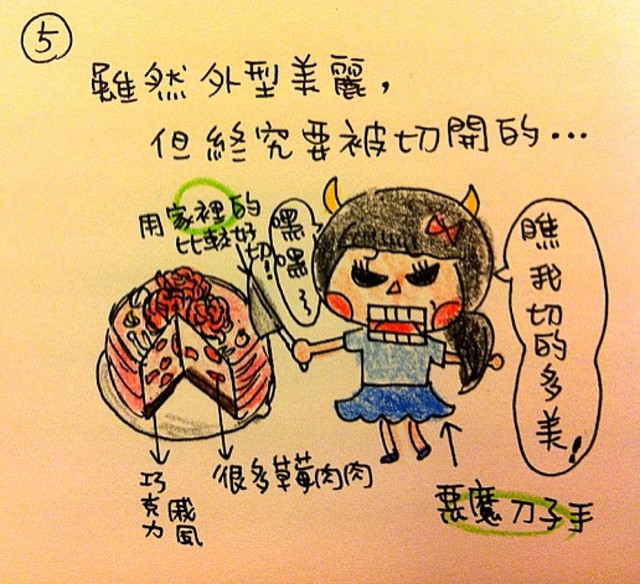 5
雖然外型美麗,
但終究要被切開的...
用家裡的
比較好
切!
嘿嘿~
瞧我切的多美!
巧克力
戚風
很多草莓肉肉
惡魔刀子手